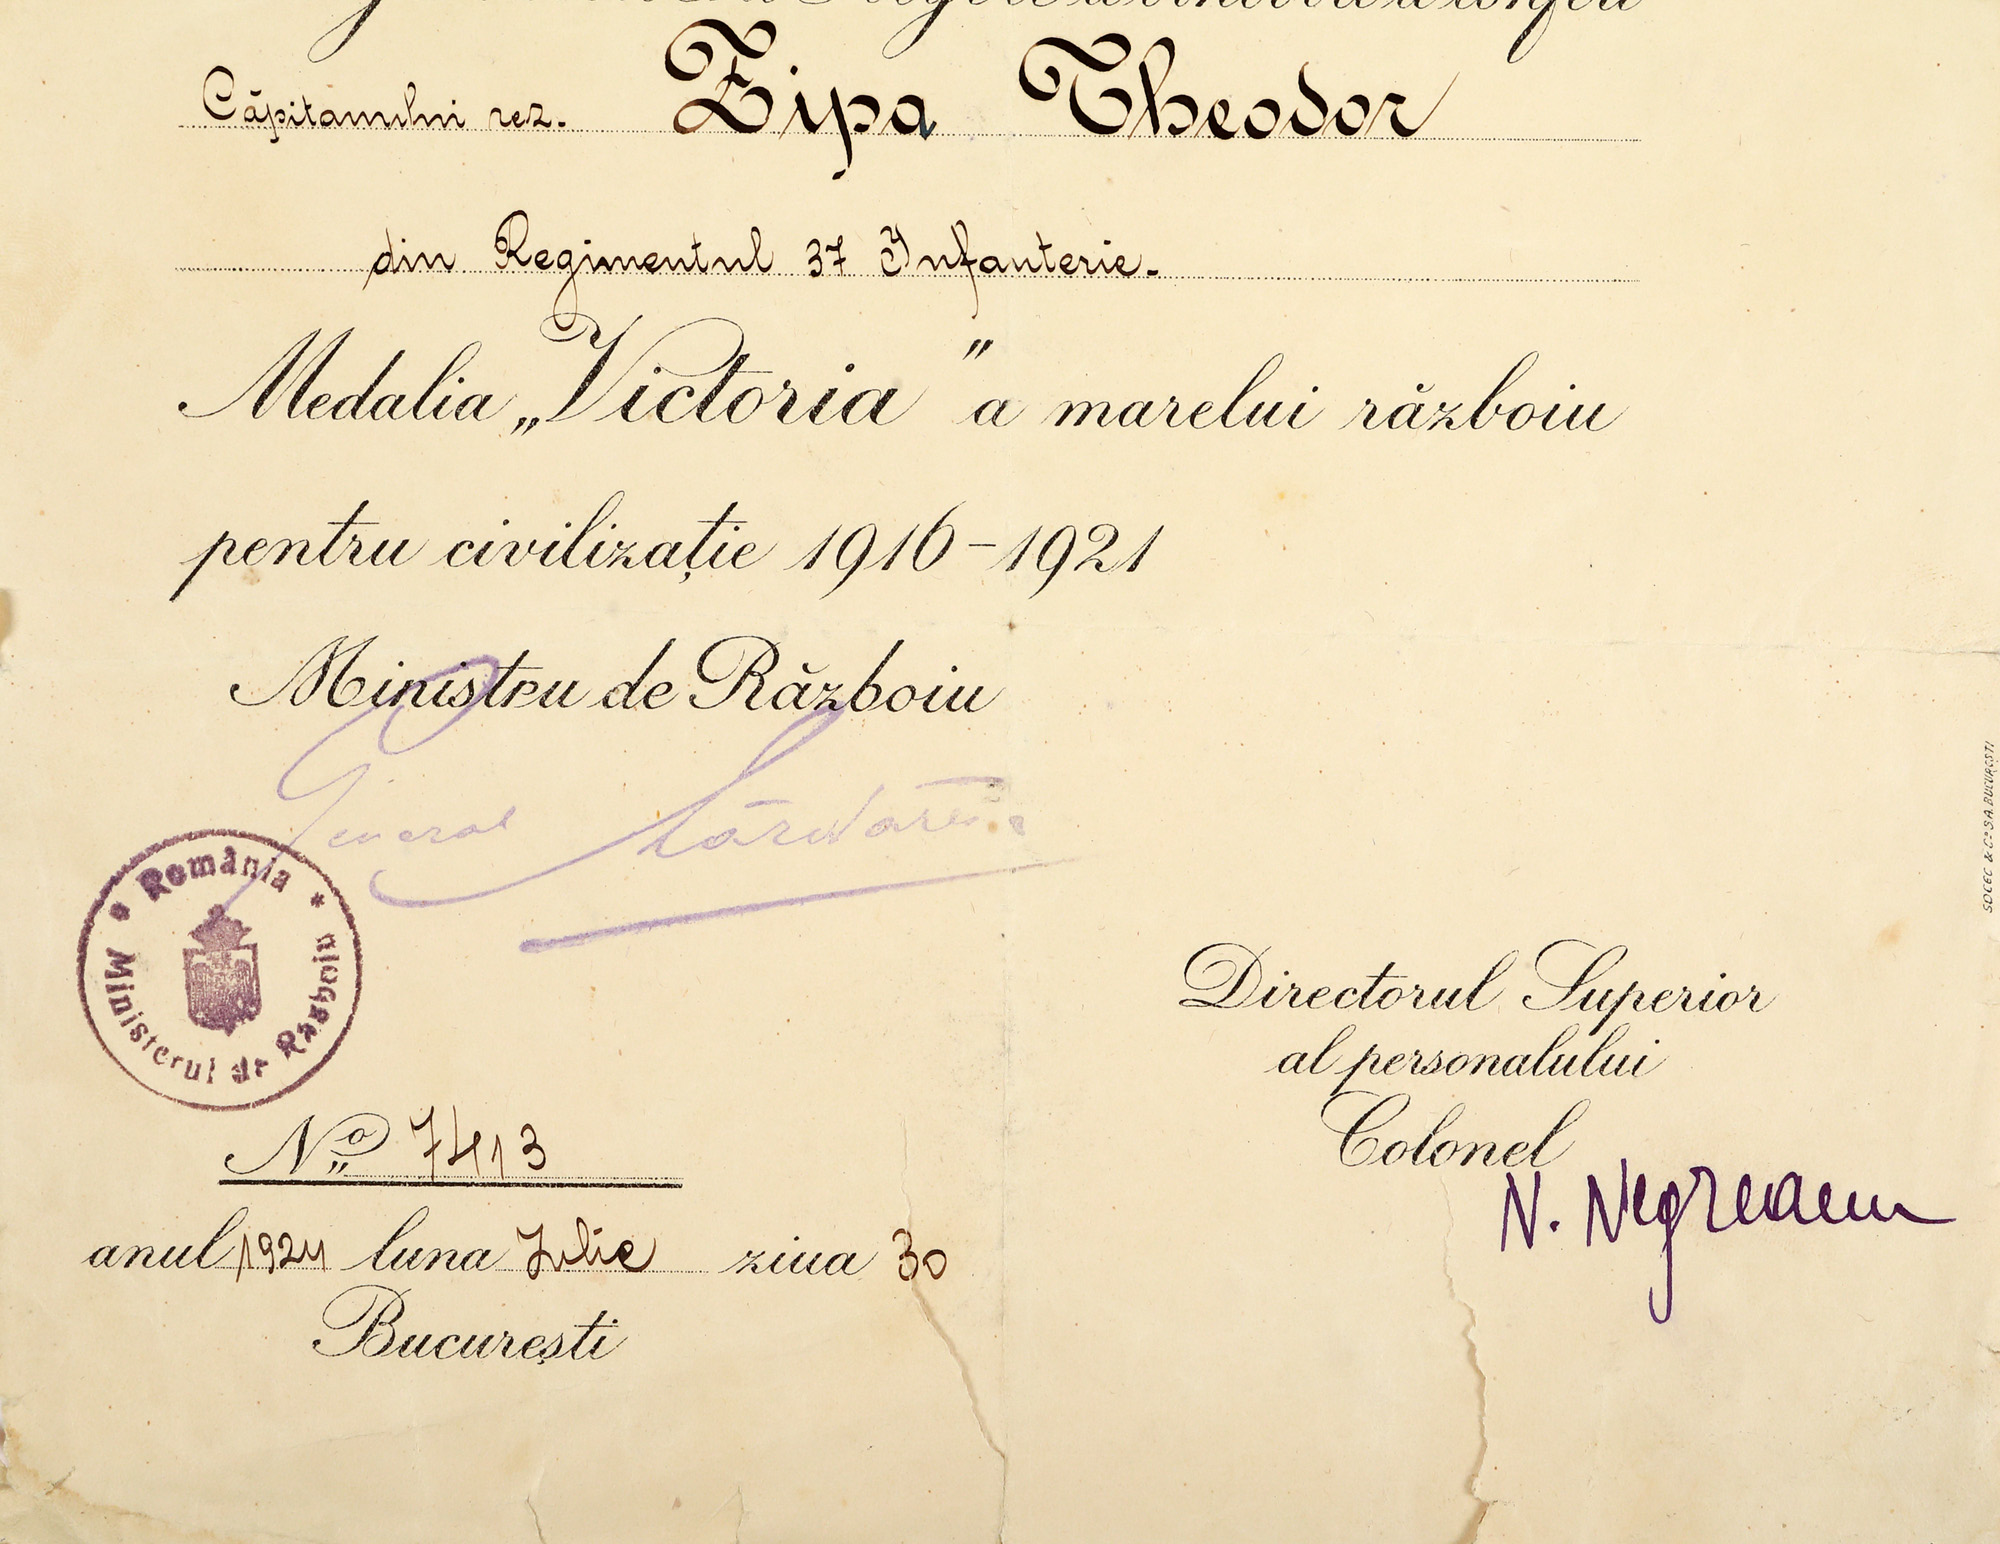 Căpitanului rez. Zipa Theodor
din Regimentul 37 Infanterie.
Medalia „Victoria" a marelui războiu
pentru civilizație 1916-1921
Ministru de Războiu
General
România
Ministerul de Răsboiu
Directorul Superior
al personalului
Colonel
N. Negreanu
No 7413
anul 1924 luna Iulie ziua 30
București
SOCEC & Co. S.A. BUCUREȘTI